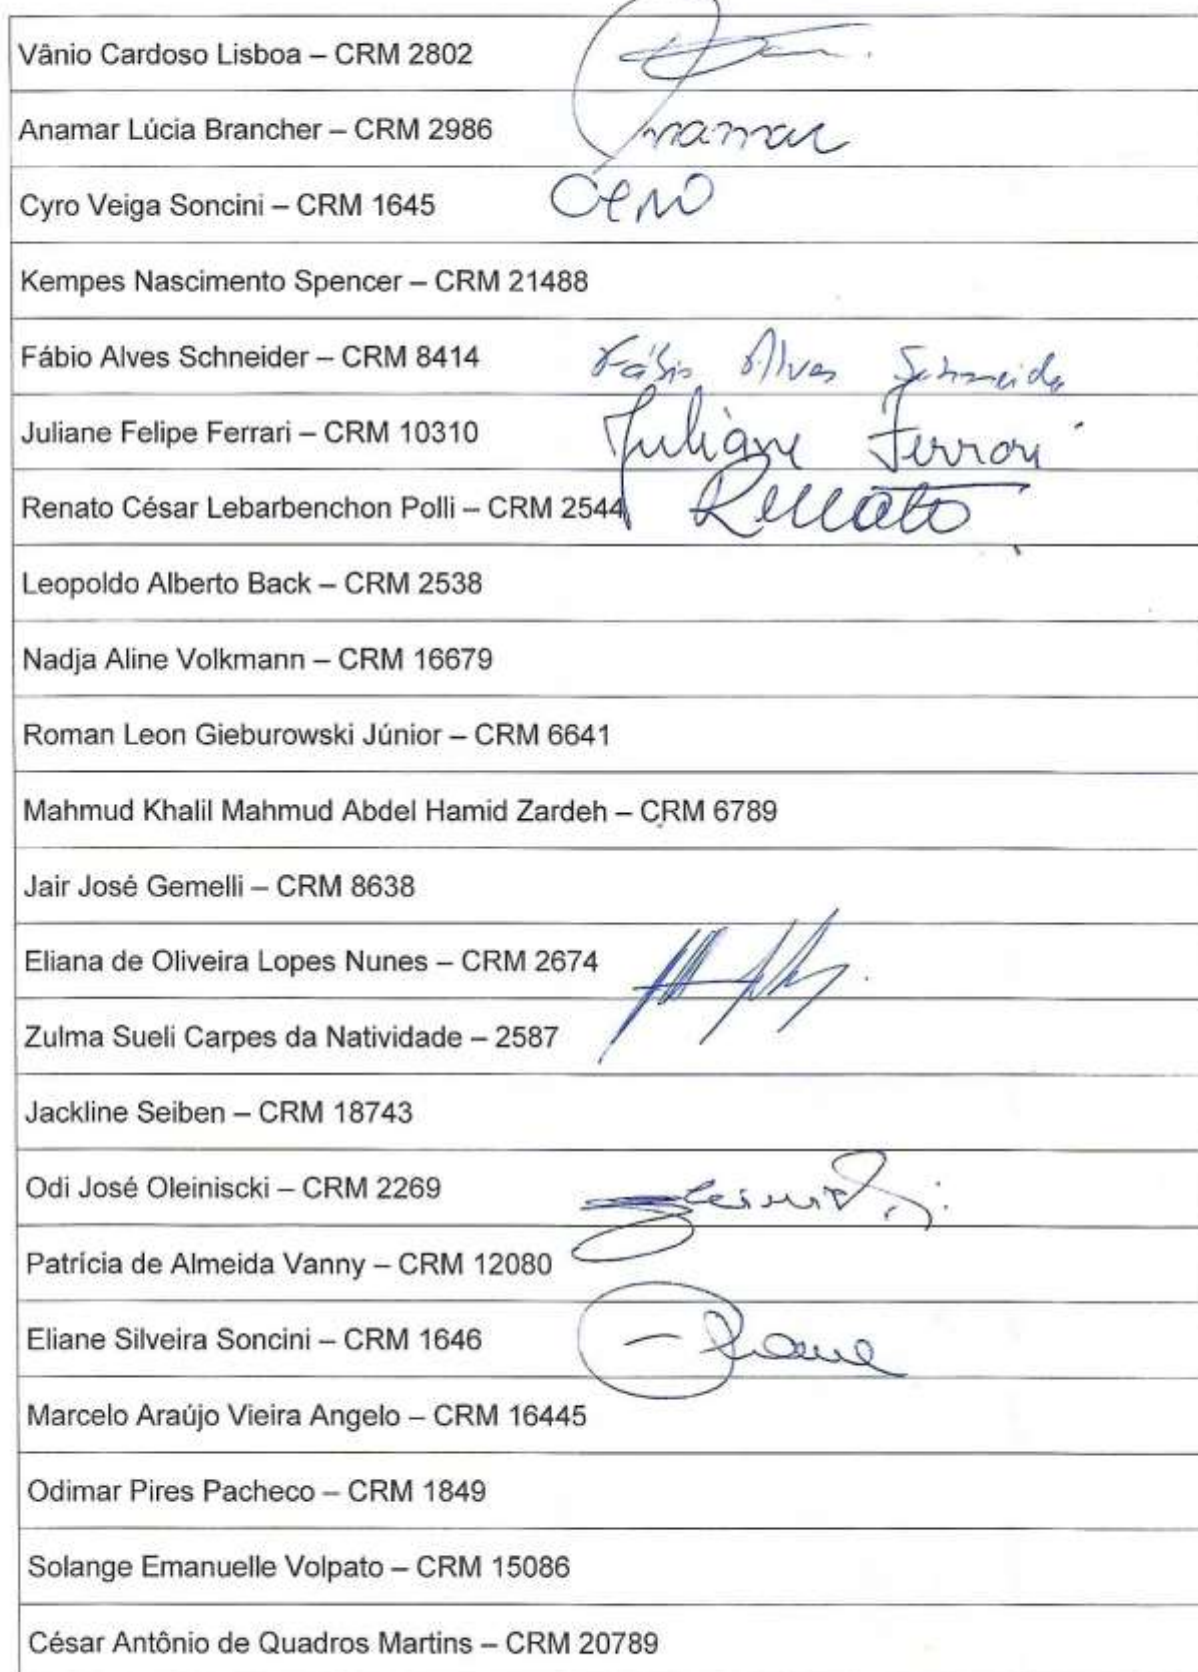 Vânio Cardoso Lisboa – CRM 2802
Anamar Lúcia Brancher – CRM 2986 Anamar
Cyro Veiga Soncini – CRM 1645
Kempes Nascimento Spencer – CRM 21488
Fábio Alves Schneider – CRM 8414 Fábio Alves Schneider
Juliane Felipe Ferrari – CRM 10310 Juliane Ferrari
Renato César Lebarbenchon Polli – CRM 2544 Renato
Leopoldo Alberto Back – CRM 2538
Nadja Aline Volkmann – CRM 16679
Roman Leon Gieburowski Júnior – CRM 6641
Mahmud Khalil Mahmud Abdel Hamid Zardeh – CRM 6789
Jair José Gemelli – CRM 8638
Eliana de Oliveira Lopes Nunes – CRM 2674
Zulma Sueli Carpes da Natividade – 2587
Jackline Seiben – CRM 18743
Odi José Oleiniscki – CRM 2269
Patrícia de Almeida Vanny – CRM 12080
Eliane Silveira Soncini – CRM 1646
Marcelo Araújo Vieira Angelo – CRM 16445
Odimar Pires Pacheco – CRM 1849
Solange Emanuelle Volpato – CRM 15086
César Antônio de Quadros Martins – CRM 20789